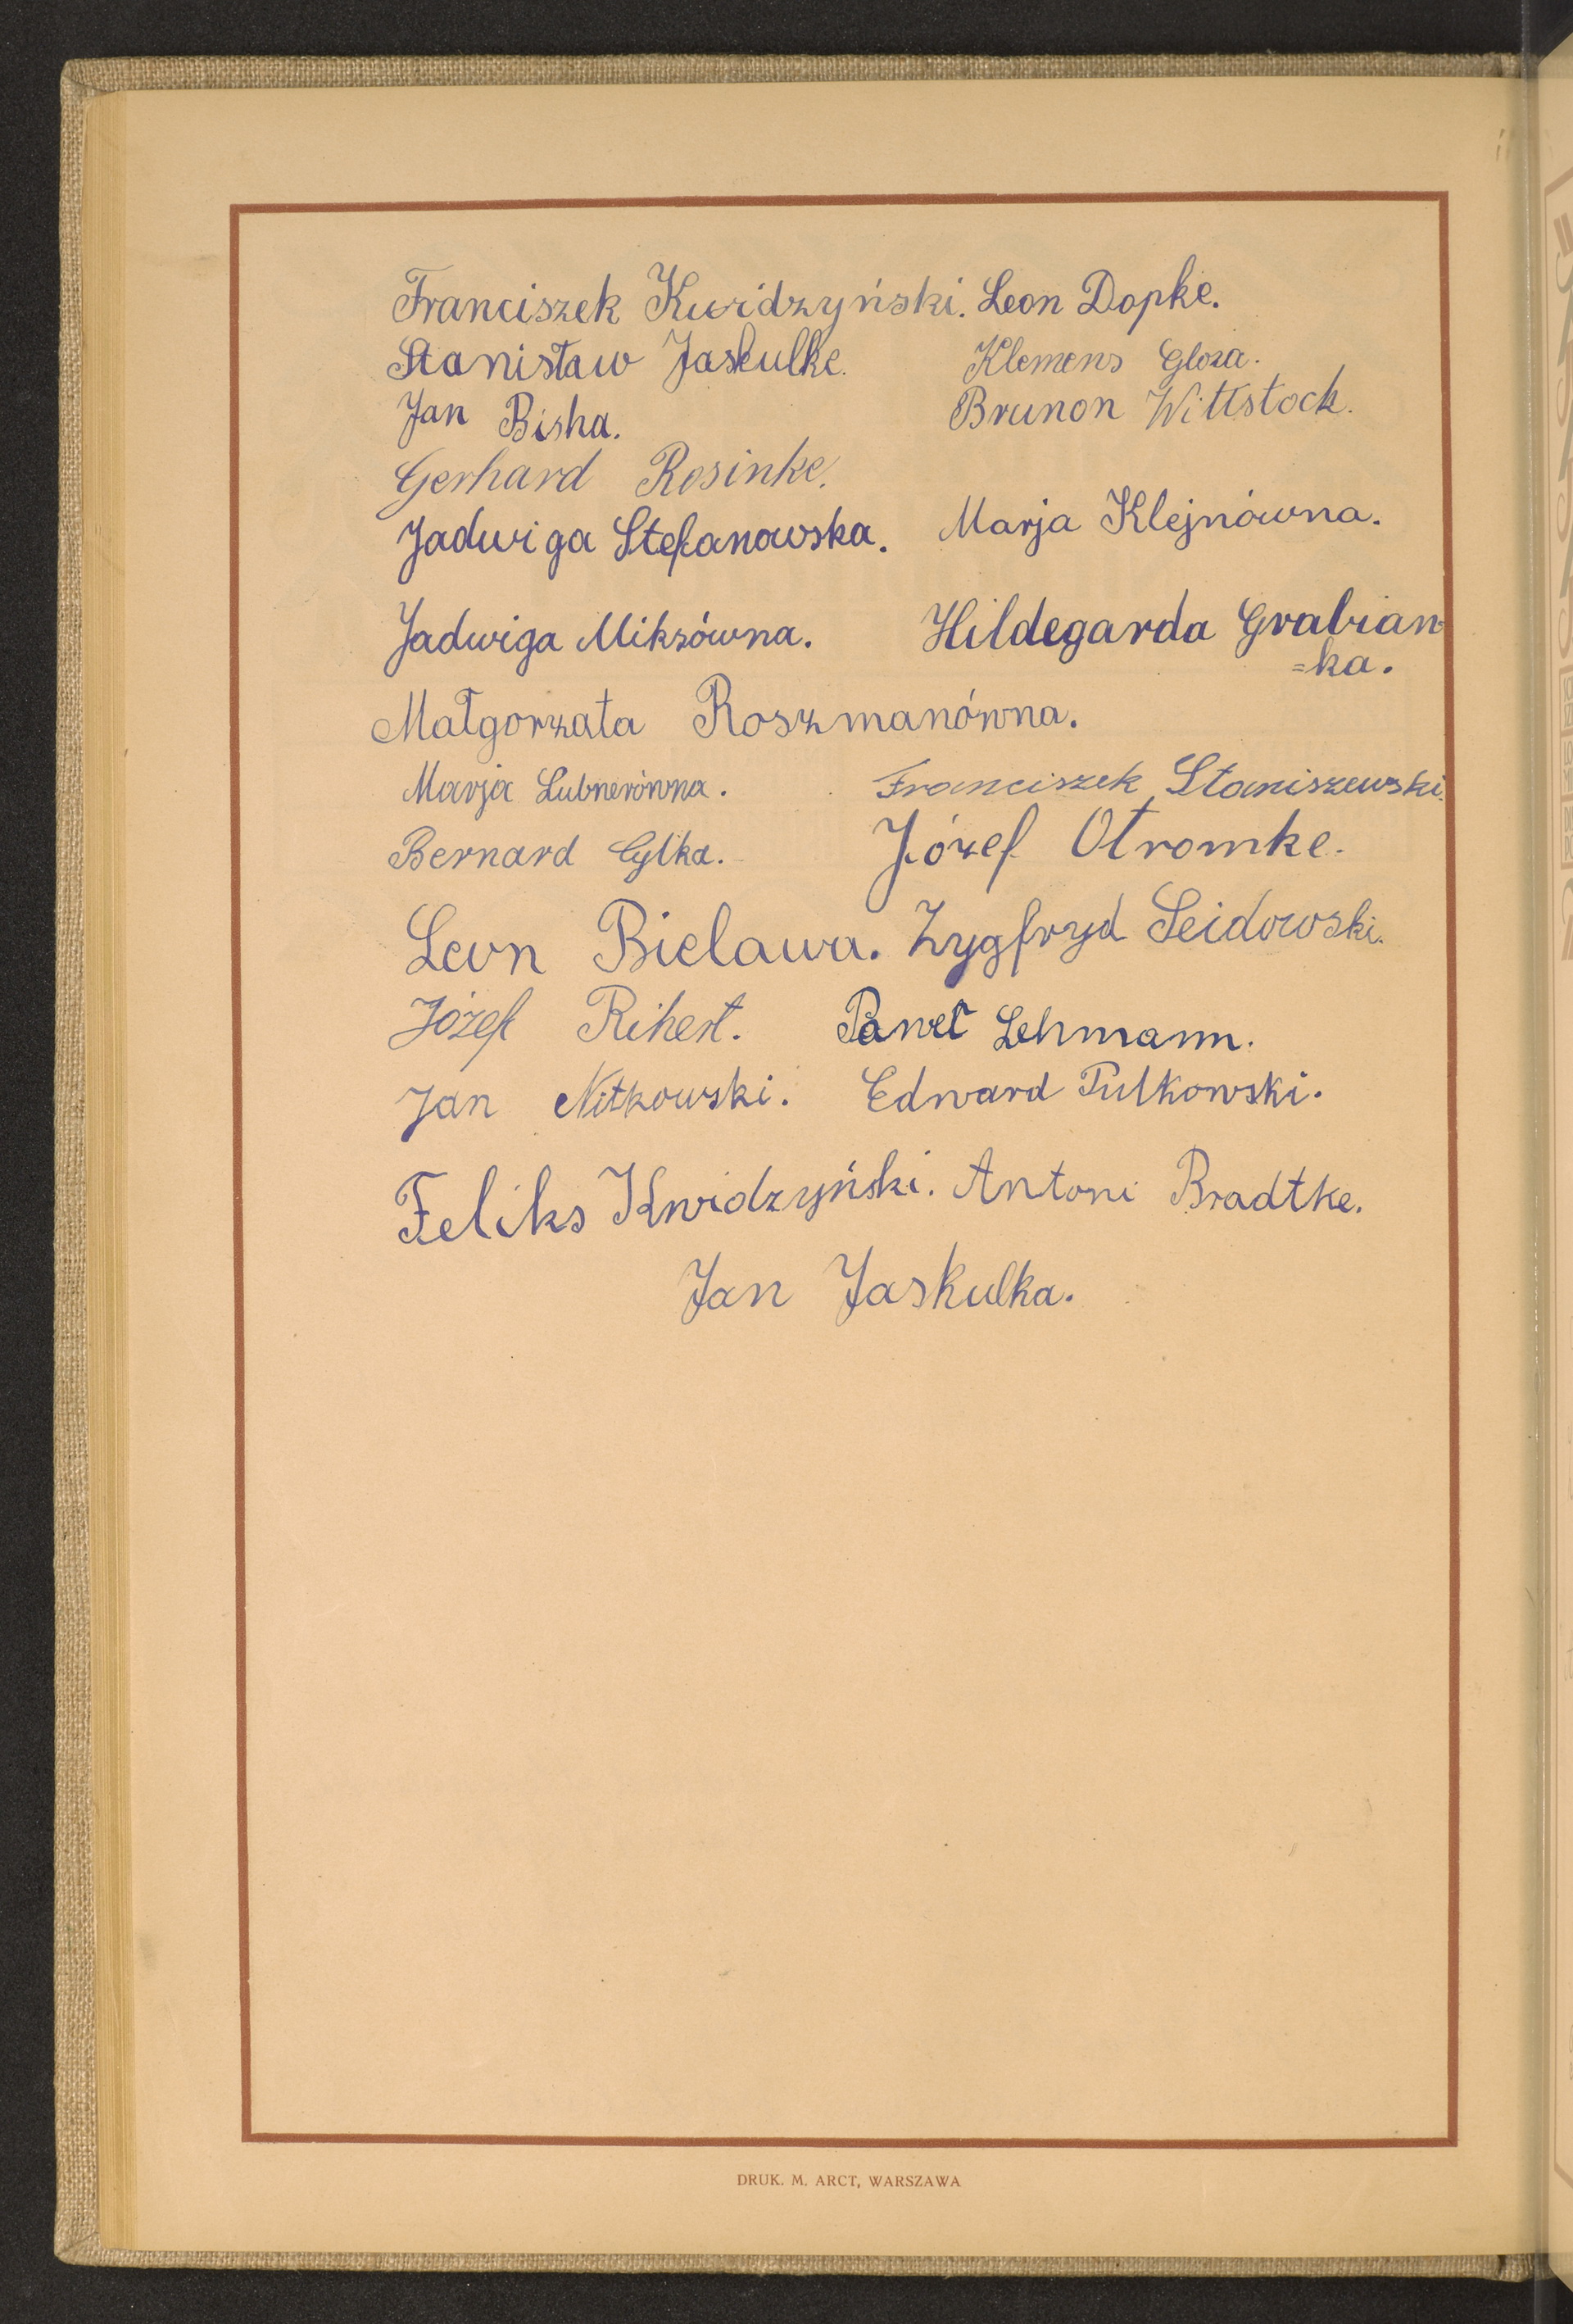 Franciszek Kwidzyński. Leon Dopke.
Stanisław Jaskulke. Klemens Gloza.
Jan Bisha. Brunon Wittstock.
Gerhard Rosinke.
Jadwiga Stefanowska. Marja Klejnówna.
Jadwiga Mikzówna. Hildegarda Grabian
=ka.
Małgorzata Roszmanówna.
Marja Lubnerówna. Franciszek Staniszewski.
Bernard Cylka. Józef Otromke.
Leon Bielawa. Zygfryd Seidowski.
Józef Rihert. Paweł Lehmann.
Jan Nitkowski. Edward Pulkowski.
Feliks Kwidzyński. Antoni Bradtke.
Jan Jaskulka.
DRUK. M. ARCT, WARSZAWA